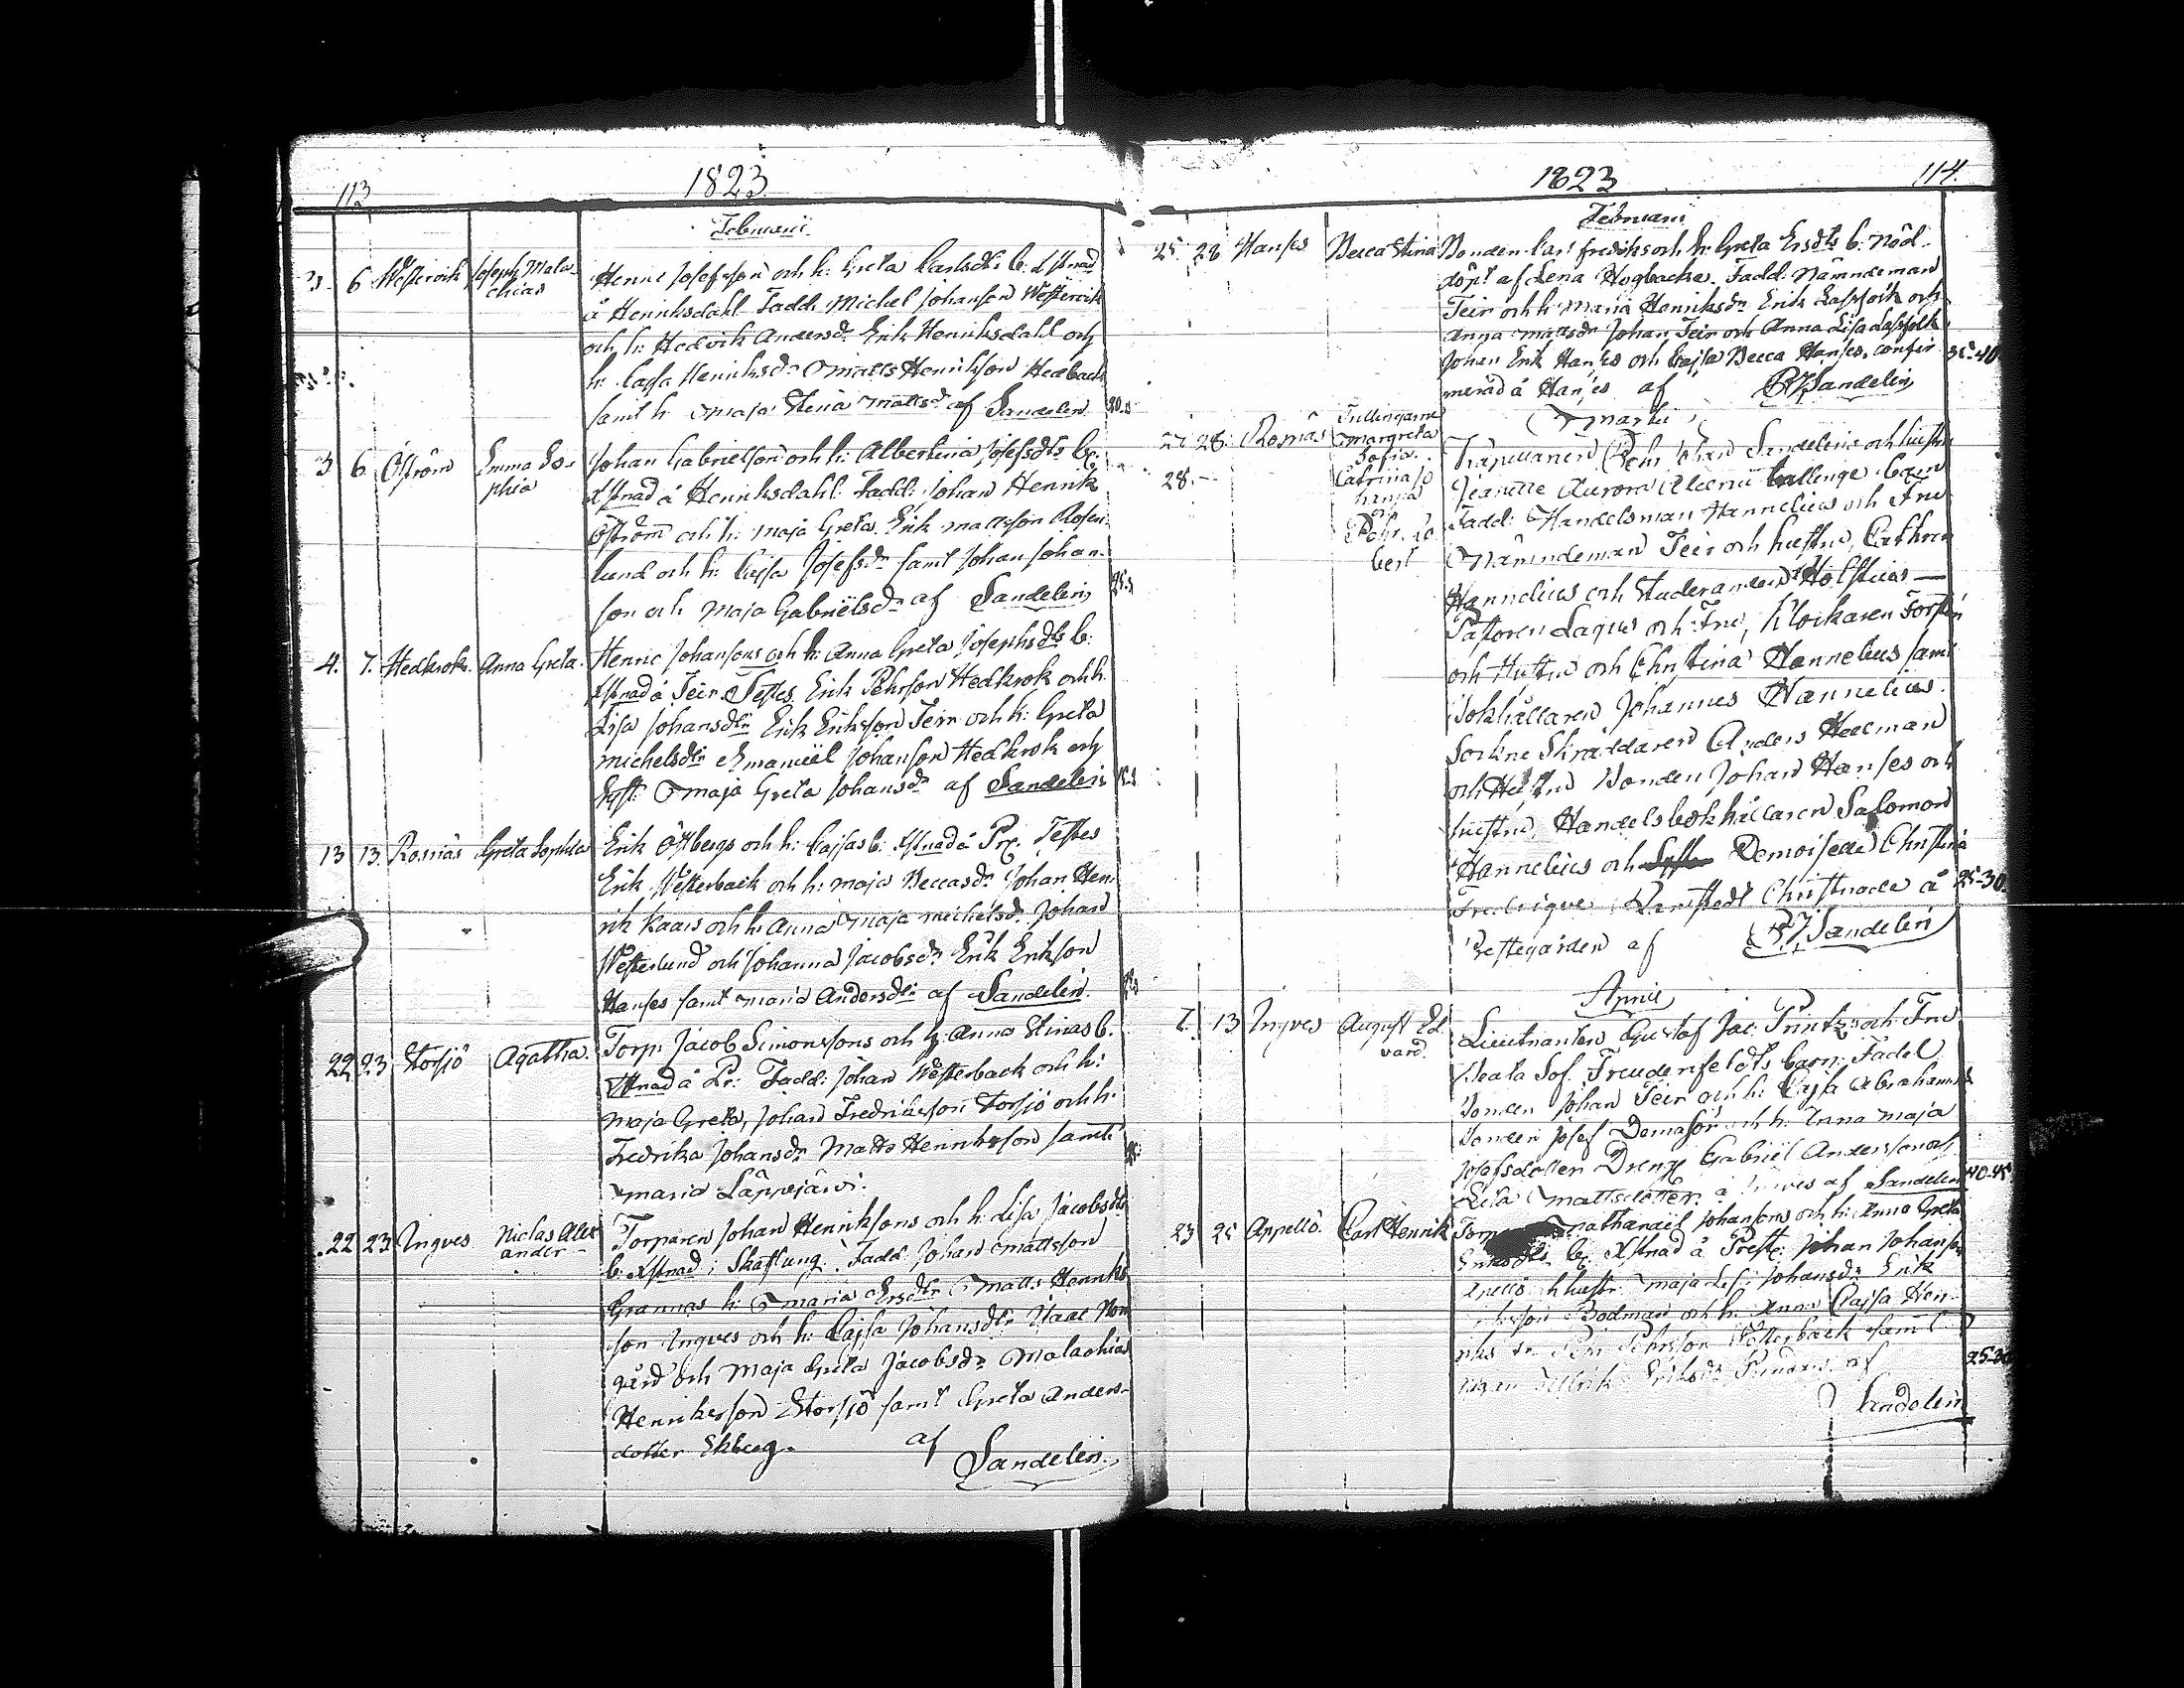 113
1823
Februari
3. 6 Westervik Joseph Mala-
chias
Henric Josefsson och h: Greta Carlsdrs b: Xstnad
å Henriksdahl Fadd: Michel Johanson Westervik
och h: Hedvik Andersdr Erik Henriksdahl och
h: Cajsa Henriksdr Matts Henrikson Hedback
samt h: Maja Stina Mattsdr af Sandelin
3 6. Öström Emma So-
phia
Johan Gabrielson och h: Albertina Josefsdrs b:
Xstnad å Henriksdahl: Fadd: Johan Henrik
Öström och h: Maja Greta. Erik Mattsson Rosen-
lund och h: Cajsa Josefsdr samt Johan Johan-
son och Maja Gabrielsdr af Sandelin
4. 7. Hedkrok. Anna Greta.
Henric Johansons och h: Anna Greta Josephsdrs b:
Xstnad å Teir. Testes Erik Pehrson Hedkrok och h:
Lisa Johansdtr Erik Erikson Teir och h: Greta
Michelsdtr Emanuel Johanson Hedkrok och
Maja Greta Johansdr af Sandelin
13 13. Rosnäs Greta Sophia
Erik Östbergs och h: Cajsas b: Xstnad å Pr. Testes
Erik Westerback och h: Maja Beccasdr Johan Hen-
rik Kaars och h: Anna Maja Michelsdr Johan
Westerlund och Johanna Jacobsdr Erik Erikson
Hanses samt Maria Andersdtr af Sandelin
22 23 Storsjö Agatha.
Torp: Jacob Simonssons och h: Anna Stinas b.
Xstnad å Pr: Fadd: Johan Westerback och h:
Maja Greta, Johan Fredrikson Storsjö och h:
Fredrika Johansdr Matts Henrikson samt
Maria Lappojärvi.
22 23 Ingves Niclas Alex
ander
Torparen Johan Henriksons och h: Lisa Jacobsdrs
b: Xstnad i Skaftung: Fadd: Johan Mattsson
Grannas h: Maria Ersdtr Matts Henrik-
son Ingves och h: Cajsa Johansdtr Isaac Norr
gård och Maja Greta Jacobsdr Malachias
Henrikson Storsjö samt Greta Anders-
dotter Ekberg. af
Sandelin
1823
114.
Februari
25. 28 Hanses Becca Stina
Bonden Carl Fredriks och h: Greta Ersdrs b: Nöd-
döpt af Lena Hogbacka. Fadd: Nämndeman
Teir och h: Maria Henriksdr Erik Lassfolk och
Anna Mattsdr Johan Teir och Anna Lisa Lassfolk
Johan Erik Hanses och Cajsa Becca Hanses, confir-
merad å Hanses af Sandelin
Martii
27 28. Rosnäs
Margreta
Sofia.
28.
Catrina Jo
hanna
och
Pehr Ro
bert
Kapellanen Pehr Johan Sandelins och hustru
Jeanette Aurora Barn
Fadd: Handelsman Hannelius och Fru
Nämndeman Teir och hustru, Cathrin
Hannelius och Studeranden Holstius
Pastoren Lagus och Fru, Klockaren Forsten
och Hustru och Christina Hannelius samt
Bokhållaren Johannes Hannelius.
Sockne Skräddaren Anders Hedman
och Hustru Bonden Johan Hanses och
hustru, Handelsbokhållaren Salomon
Hannelius och Demoiselle Christina
Fredrique Christnade å 25-30.
Prestegården af Sandelin
April
7. 13 Ingves August Ed
vard.
Lieutnanten Gustaf Jac: Printz och Fru
Beata Sof. Freudenfeldts barn: Fadd.
Bonden Johan Teir och h: Cajsa Abrahamsd
Bonden Josef Domason och h: Anna Maja
Josefsdotter Dreng Gabriel Anderson och
Lisa Mattsdotter å Ingves af Sandelin 40-45
23 25 Appellö. Carl Henrik
Torp Nathanael Johansons och h: Anna Greta
Eriksdtrs b: Xstnad å Prest: Johan Johanson
hustr Maja Lis: Johansdr Erik
Bodman och h: Anna Cajsa Hen-
riks dr Pehr Pehrson Westerback samt
af
Sandelin